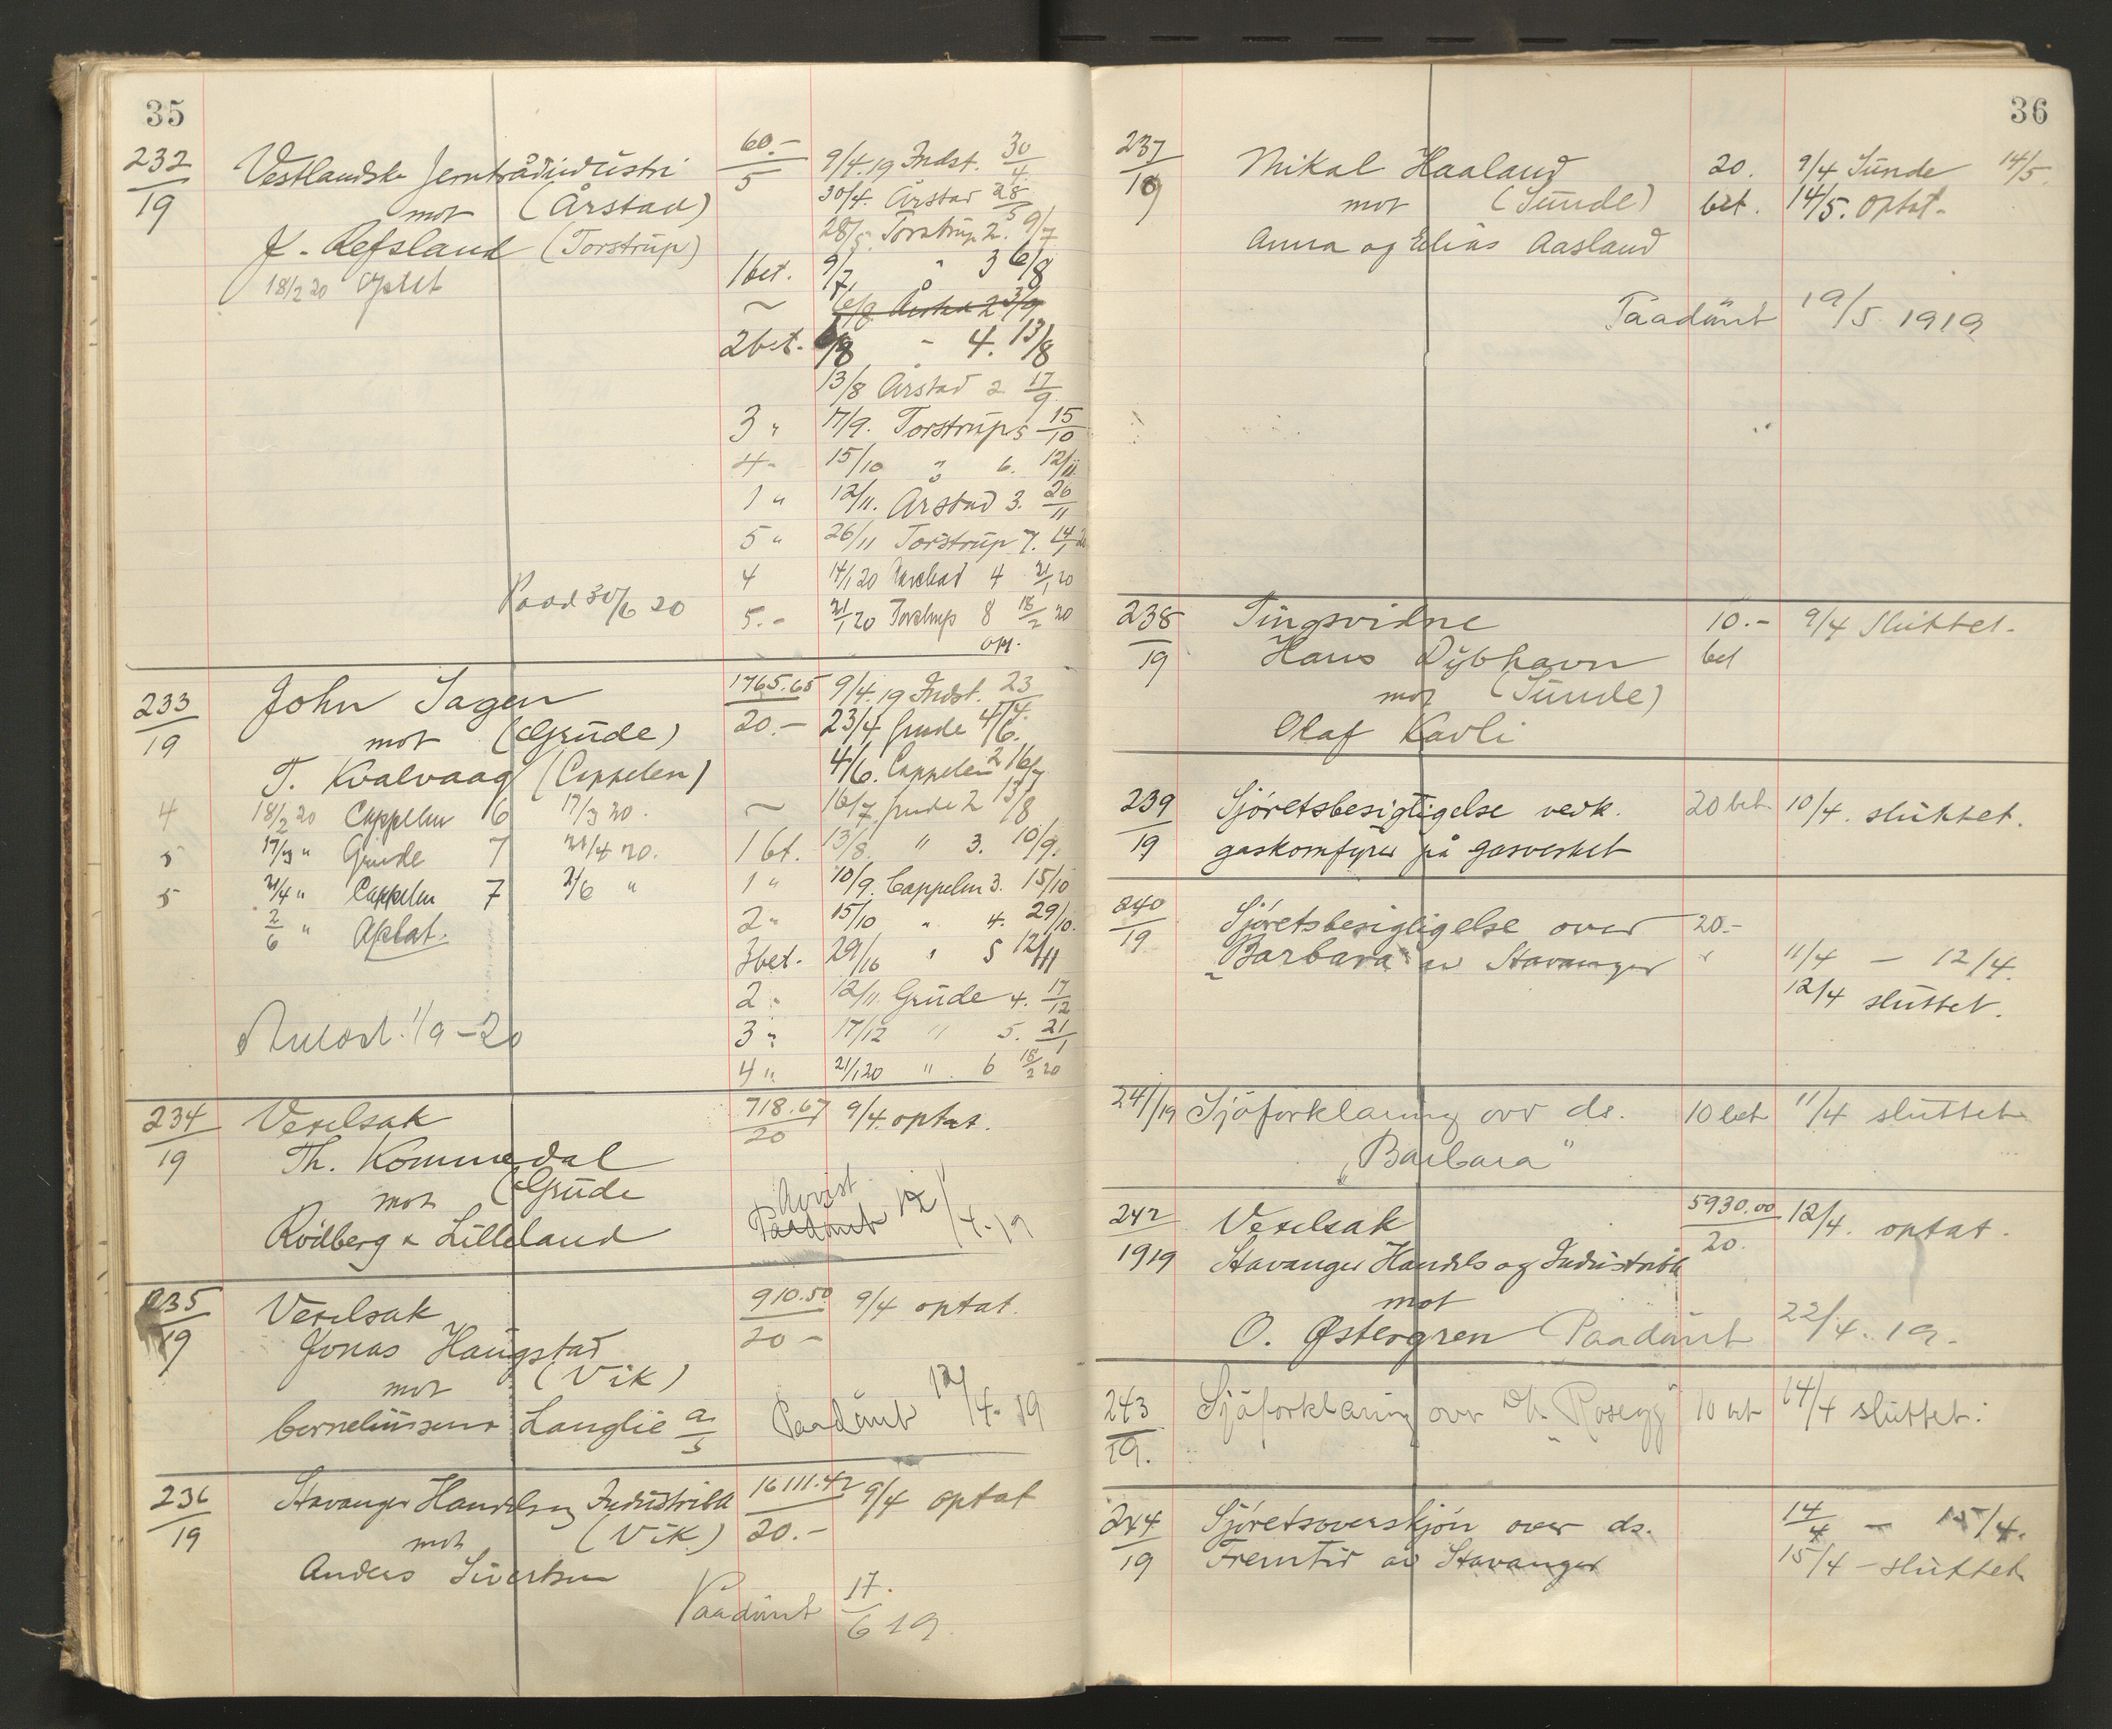 35
232/19 Vestlandske Jerntrådindustri 60.-/5 9/4.19 Indst. 30/4.
mot (Årstad) 30/4. Årstad 28/5
J. Refsland (Torstrup) 28/5. Torstrup 2. 9/7
18/2 20 Optat 1 bet. 9/7. " 3 6/8
~ 6/8 Årstad 2 3/9
2 bet. 6/8 - 4. 13/8
13/8 Årstad 2 17/9
3 " 17/9. Torstrup 5 15/10
4 - 15/10 " 6. 12/11
1 " 12/11. Årstad 3. 26/11
5 " 26/11 Torstrup 7. 14/1 20
4 14/1 20 Aarstad 4 21/1 20
Paad 30/6 20 5.- 21/1 20 Torstrup 8 18/2 20
opt.
233/19 John Sagen 1765.65/20.- 9/4.19 Indst. 23/4.
mot (Grude) 23/4 Grude 4/6.
T. Kvalvaag (Cappelen) 4/6. Cappelen 2 16/7
4 18/2 20 Cappelen 6 17/3 20. ~ 16/7 Grude 2 13/8
5 17/3 " Grude 7 21/4 20. 1 bt. 13/8. " 3. 10/9.
5 21/4 " Cappelen 7 2/6 " 1 " 10/9. Cappelen 3. 15/10
2/6 " Optat. 2 " 15/10 " 4. 29/10.
3 bet. 29/10 " 5 12/11
2 " 12/11. Grude 4. 17/12
1/9 - 20 3 " 17/12 " 5. 21/1
4 " 21/1 20 " 6 18/2 20
234/19 Vexelsak 718.67/20 9/4. optat.
Th. Kommedal
mot (Grude
Rödberg & Lilleland
Avvist
Paadömt 12/4-19
235/19 Vexelsak 910.50/20- 9/4 optat.
Jonas Haugstad
mot (Vik)
Corneliussen & Langlie a/s Paadömt 12/4-19
236/19 Stavanger Handels og Industribk 16111.42/20.- 9/4 optat
mot (Vik)
Anders Sivertsen
Paadömt 17/6 19.
36
237/19 Mikal Haaland 20. 9/4 Sunde 14/5.
mot (Sunde) bet. 14/5. optat.
Anna og Elias Aasland
Paadömt 19/5. 1919
238/19 Tingsvidne 10.- 9/4 Sluttet.
Hans Dybhavn bet
mot (Sunde)
Olaf Kavli
239/19 Sjöretsbesigtigelse vedk. 20 bet 10/4. sluttet.
gaskomfyrer på gasverket
240/19 Sjöretsbesigtigelse over 20.-
"Barbara" av Stavanger " 11/4 - 12/4.
12/4 sluttet.
241/19 Sjöforklaring over ds. 10 bet 11/4 sluttet
"Barbara"
242/1919 Vexelsak 5930.00/20. 12/4. optat.
Stavanger Handels og Industribk
mot
O. Østergren Paadömt 22/4. 19.
243/19. Sjöforklaring over Ds "Rosegg" 10 bet 14/4 sluttet.
244/19 Sjöretsoverskjön over ds. 14/4 - 15/4.
Fremtid av Stavanger 15/4 - sluttet